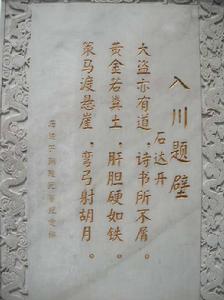 入川题壁
石达开
大盗亦有道，诗书所不屑。
黄金若粪土，肝胆硬如铁。
策马渡悬崖，弯弓射胡月。
石达开